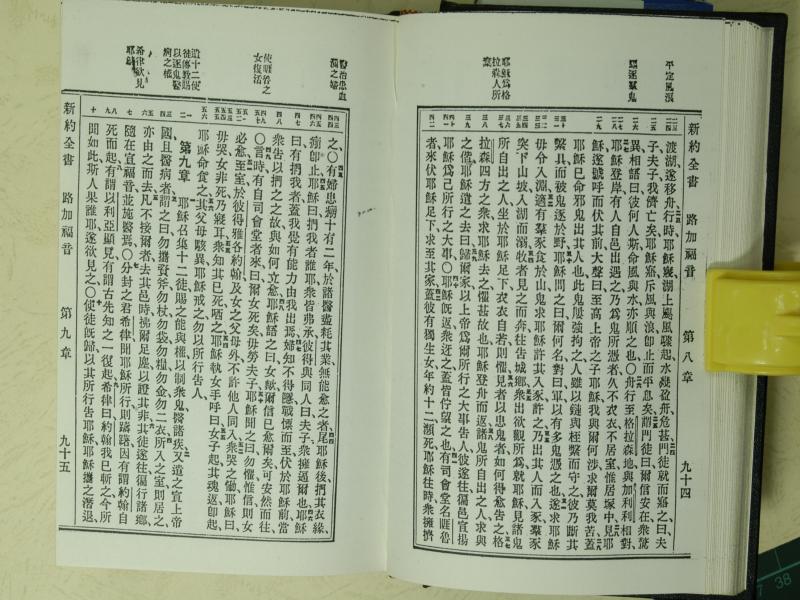 平定風浪
驅逐羣鬼
耶穌爲格
拉森人所
棄
新約全書 路加福音 第八章 九十四
渡湖、遂移舟、行時、耶穌寢、湖上颶風驟起、水幾盈舟、危甚、門徒就而寤之曰、夫
子夫子、我儕亡矣、耶穌寤、斥風與浪、卽止而平息矣、謂門徒曰、爾信安在、衆驚
異、相語曰、彼何人斯、命風與水亦順之也、○舟行至格拉森地、與加利利相對、
耶穌登岸、有人自邑出遇之、乃爲鬼所憑者、久不衣衣、不居室、惟居塚中、見耶
穌遂號呼、而伏其前、大聲曰、至高上帝之子耶穌、我與爾何涉、求爾莫我苦、蓋
耶穌已命邪鬼出其人也、此鬼屢強拘之、人雖以鏈與桎繫而守之、彼乃斷其
繫具、而被鬼逐於野、耶穌問之曰、爾何名、對曰、軍、以有多鬼憑之也、遂求耶穌
毋令入淵、適有羣豕食於山、鬼求耶穌許其入豕、許之、乃出其人而入豕、羣豕
突下山坡、入湖而溺、牧者見之而奔、往告城鄉、衆出欲觀所爲、就耶穌、見諸鬼
所自出之人、坐於耶穌足下、衣衣自若則懼、見者以患鬼者如何得愈告之、格
拉森四方之衆、求耶穌去之、懼甚故也、耶穌登舟而返、諸鬼所自出之人、求與
之偕、耶穌遣之去、曰、歸爾家、以上帝爲爾所行之大事告人、彼遂往徧邑宣揚
耶穌爲己所行之大事、○耶穌旣返、衆迓之、蓋皆佇望之也、有司會堂名睚魯
者、來伏耶穌足下、求至其家、蓋彼有獨生女、年約十二、瀕死、耶穌往時、衆擁擠
醫治患血
漏之婦
使睚魯之
女復活
遣十二使
徒傳教賜
以逐鬼醫
病之權
希律欲見
耶穌
之、○有婦患血漏十有二年、於諸醫盡耗其業、無能愈之者、尾耶穌後、捫其衣緣、
漏卽止、耶穌曰、捫我者誰耶、衆皆弗承、彼得與同人曰、夫子、衆擁逼爾也、耶穌
曰、有捫我者、蓋我覺有能力由我出焉、婦知不得隱、戰慄而至、伏於耶穌前、當
衆告以捫之之故、與如何立愈、耶穌語之曰、女歟、爾信已愈爾矣、可安然而往、
○言時、有自司會堂者家來、曰、爾女死矣、毋勞夫子、耶穌聞之曰、勿懼、惟信、則女
必愈、至室、於彼得雅各約翰及女之父母外、不許他人同入、衆哭之慟、耶穌曰、
毋哭、女非死、乃寢耳、衆知其已死、哂之、耶穌執女手、呼曰、女子起、其魂返卽起、
耶穌命食之、其父母駭異、耶穌戒之、勿以所行告人、
第九章 耶穌召集十二徒、賜之能與權、以制衆鬼、醫諸疾、又遣之宣上帝
國、且醫病者、謂之曰、勿攜資斧、勿杖、勿袋、勿糧、勿金、勿二衣、所入之室則居之、
亦由之而去、凡不接爾者、去其邑時、拂爾足塵、以證其非、其徒遂往、徧行諸鄉、
隨在宣福音、並施醫焉、○分封之君希律、聞耶穌所行、則躊躇、因有謂約翰自
死而起、有謂以利亞顯見、有謂古先知之一復起、希律曰、約翰我已斬之、今所
聞如此、斯人果誰耶、遂欲見之、○使徒旣歸、以其所行告耶穌、耶穌攜之潛退、
新約全書 路加福音 第九章 九十五
38